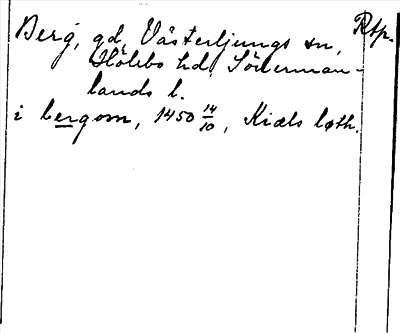 Berg, gd, Västerljungs sn, Rtp.
Hölebo hd, Söderman-
lands l.
i bergom, 1450 14/10, Kiæls løth.